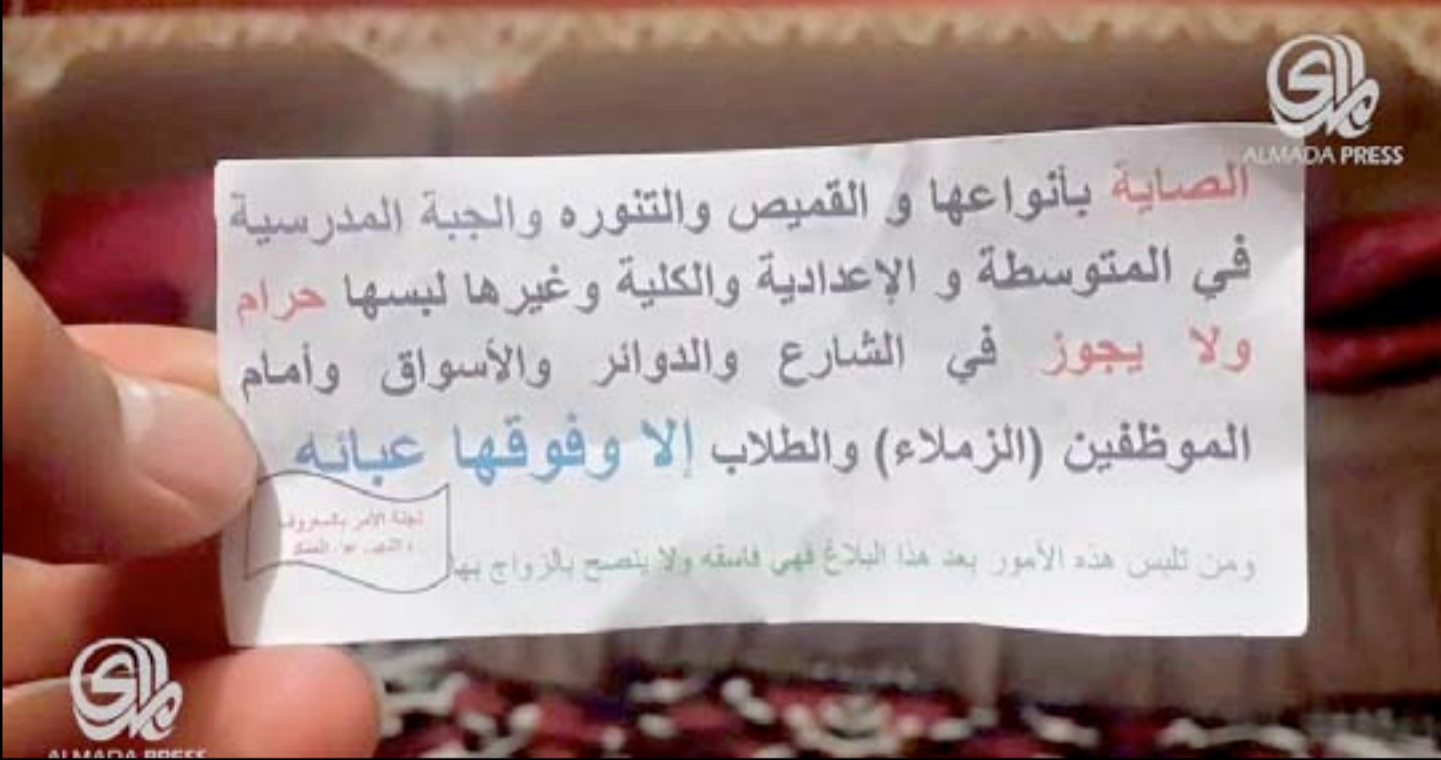 ALMADA PRESS
الصاية بأنواعها و القميص والتنوره والجبة المدرسية
في المتوسطة و الإعدادية والكلية وغيرها لبسها حرام
ولا يجوز في الشارع والدوائر والأسواق وأمام
الموظفين (الزملاء) والطلاب إلا وفوقها عبائه
لجنة الأمر بالمعروف
و النهي عن المنكر
ومن تلبس هذه الأمور بعد هذا البلاغ فهي فاسقه ولا ينصح بالزواج بها
ALMADA PRESS